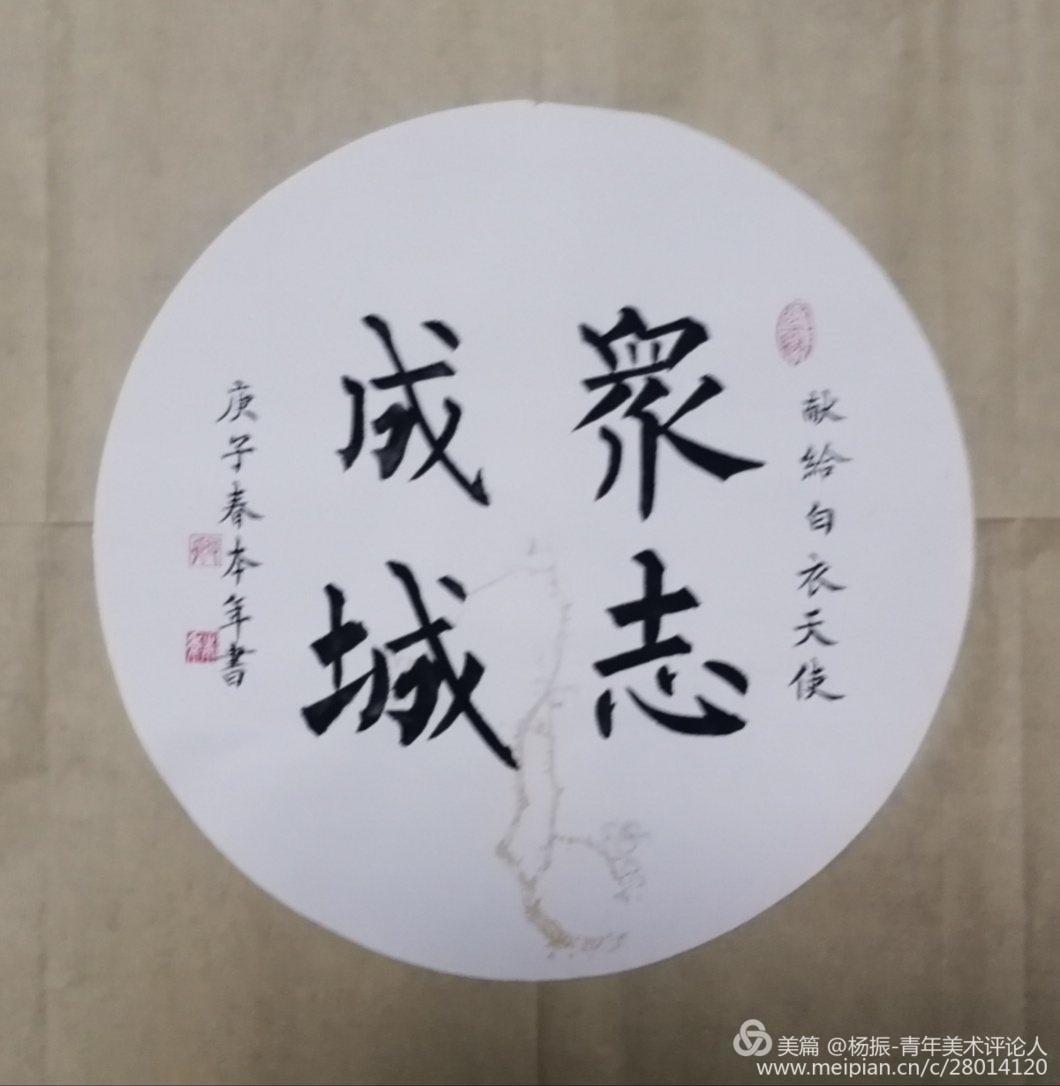 献给白衣天使
眾志
成城
庚子春本年書
美篇 @杨振-青年美术评论人
www.meipian.cn/c/28014120